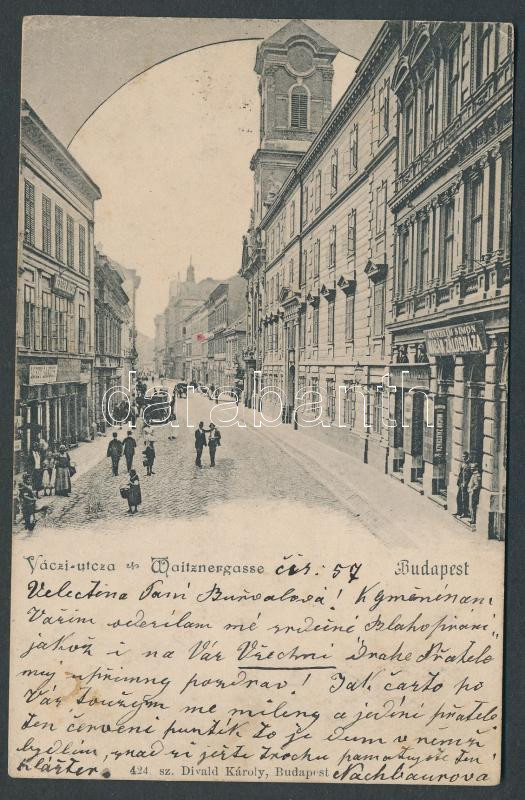 MANNHEIM SIMON
MAGÁN ZÁLOGHÁZA
darabanth
Váczi-utcza Waitznergasse čis: 57 Budapest
Velectěna Paní Buřvalová! K jmeninám
Vašim odesílám mé srdečné Blahopřání,
jakož i na Vás Všechni Drahé Přátele
můj upřimný pozdrav! Jak často po
Vás toužím mé milený a jediní přátelé
ten červení punktík to je dum v němž
bydlím, snad si ještě trochu pamatujete ten
klášter. 424. sz. Divald Károly, Budapest Nachbaurova